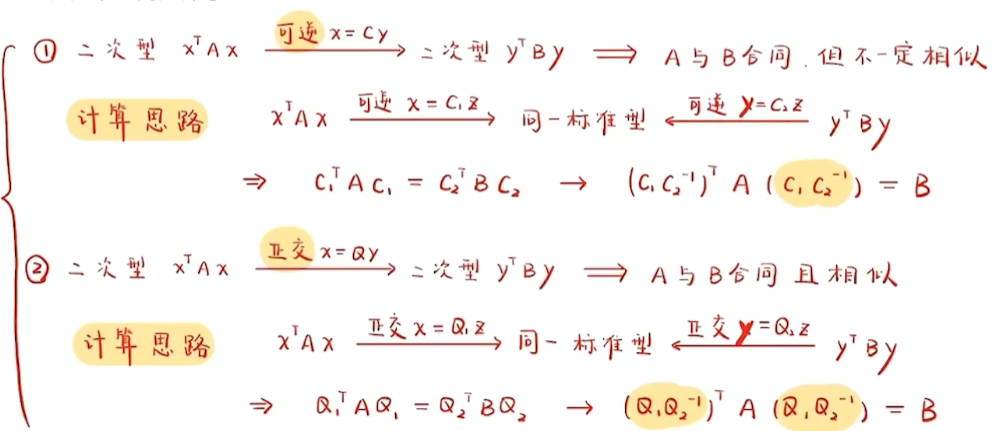 ① 二次型 xᵀAx 可逆 x=Cy → 二次型 yᵀBy ⟹ A与B合同.但不一定相似
计算思路 xᵀAx 可逆 x=C₁z → 同一标准型 ← 可逆 y=C₂z yᵀBy
⇒ C₁ᵀAC₁ = C₂ᵀBC₂ → (C₁C₂⁻¹)ᵀ A (C₁C₂⁻¹) = B
② 二次型 xᵀAx 正交 x=Qy → 二次型 yᵀBy ⟹ A与B合同且相似
计算思路 xᵀAx 正交 x=Q₁z → 同一标准型 ← 正交 y=Q₂z yᵀBy
⇒ Q₁ᵀAQ₁ = Q₂ᵀBQ₂ → (Q₁Q₂⁻¹)ᵀ A (Q₁Q₂⁻¹) = B